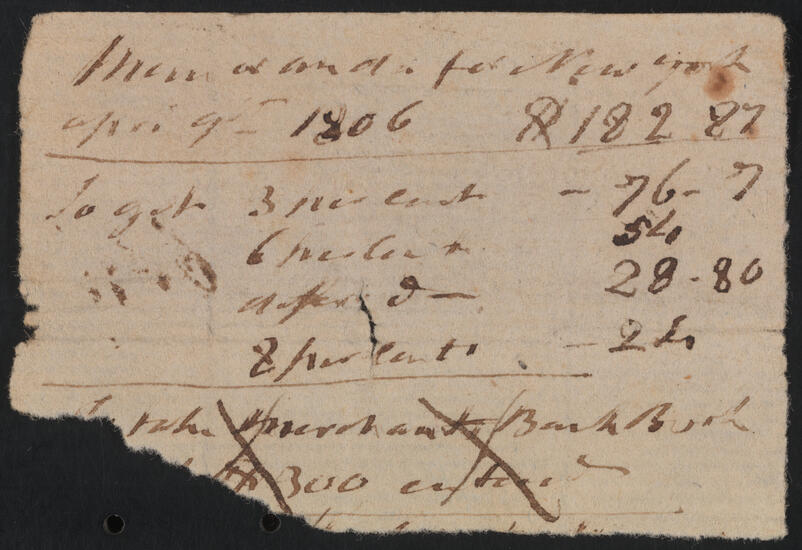 Memoranda for New york
april 9th 1806 $ 182 87
To get 3 per cent - 76 - 7
6 per Cent 54
deferd - 28 - 80
8 per cents - 24
To take Merchants Bank Book
$ 300 enterd